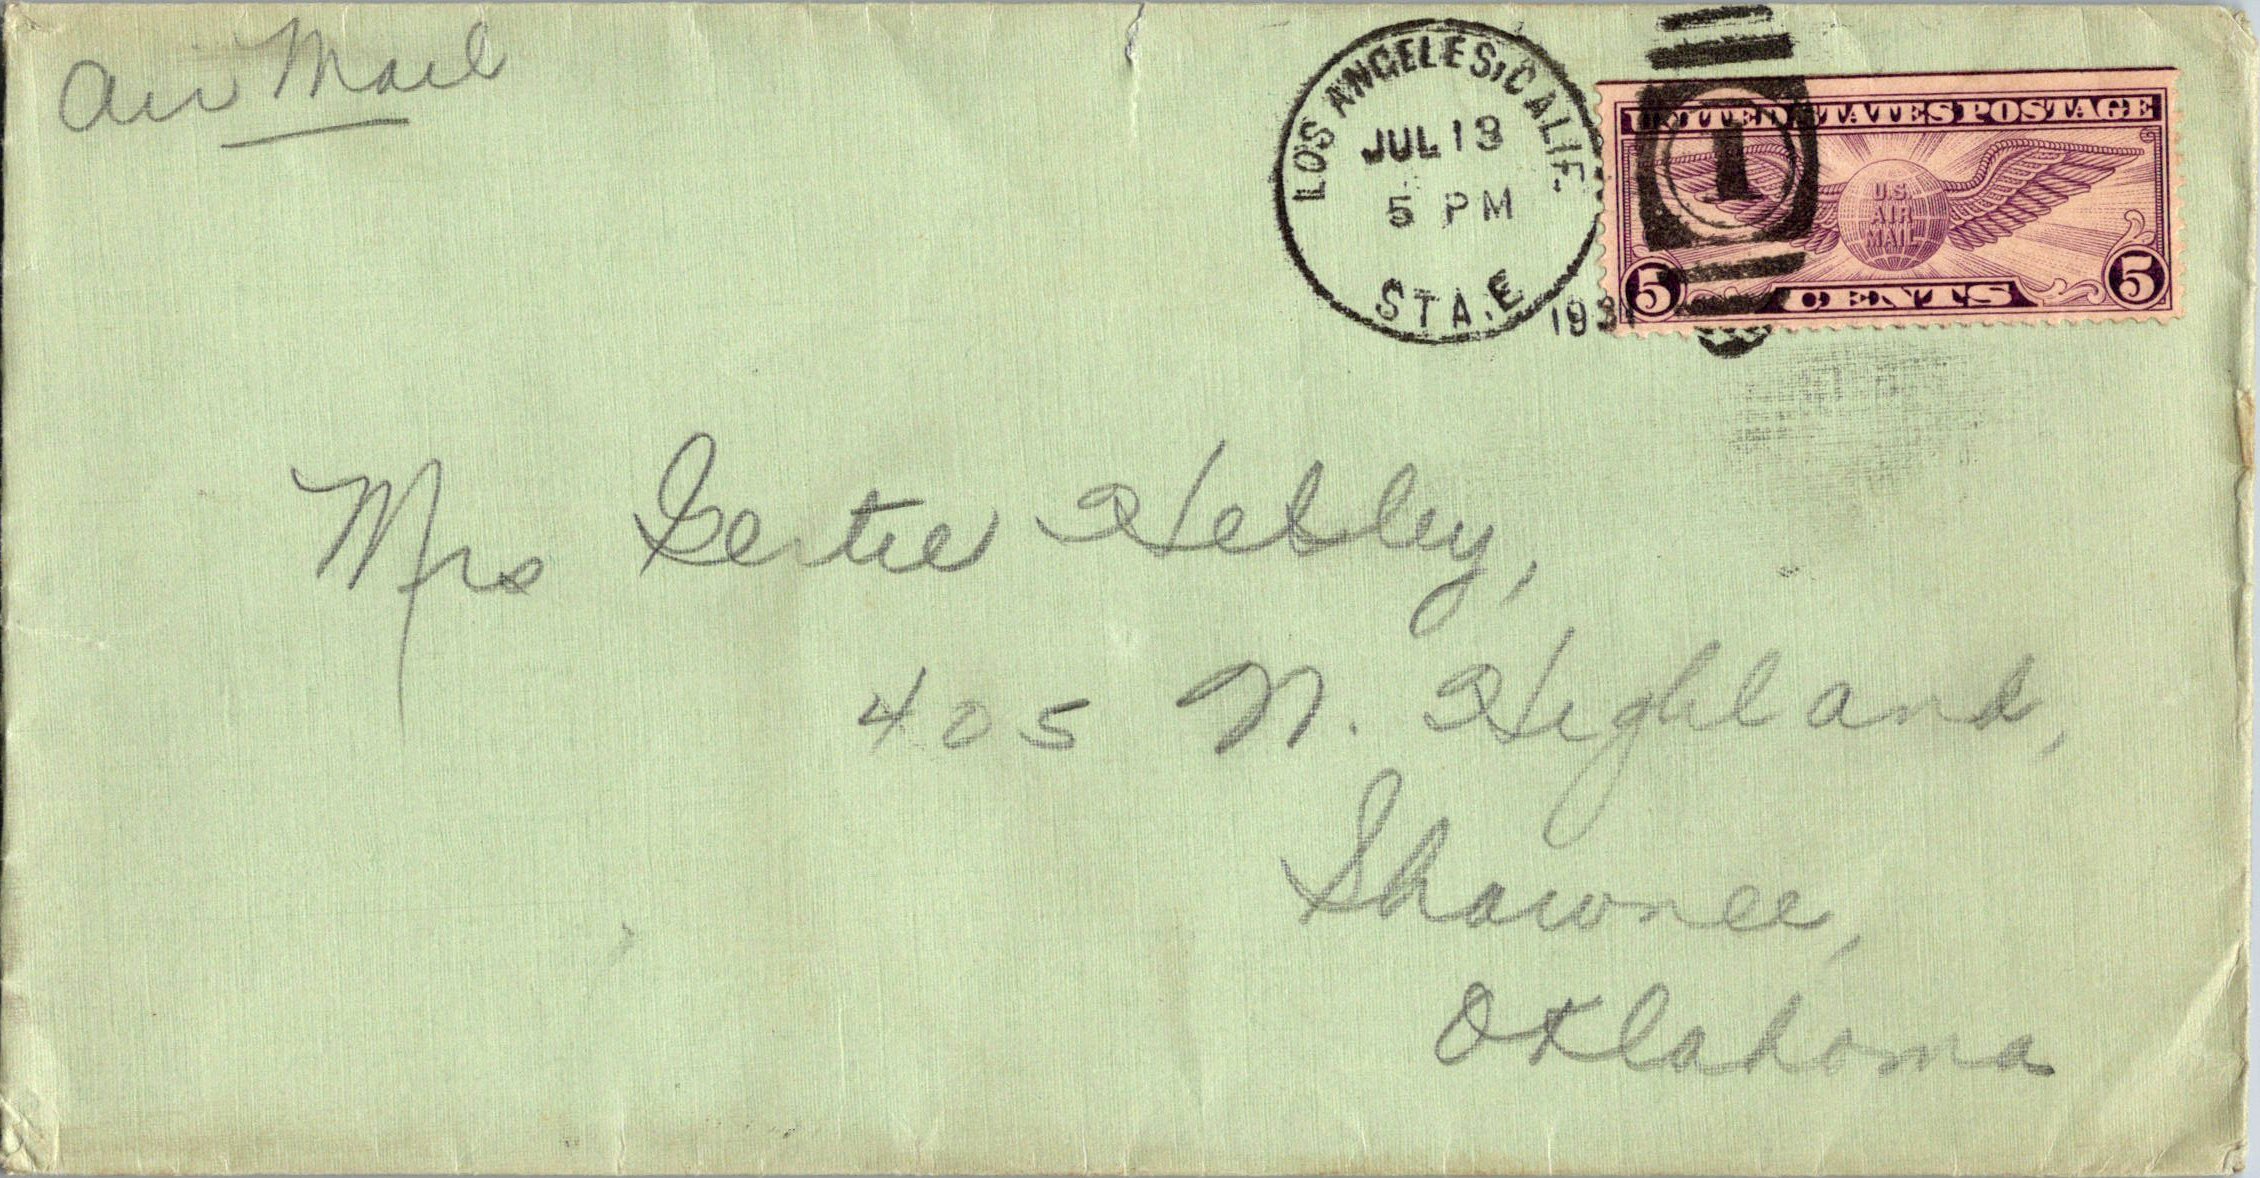 Air Mail
LOS ANGELES, CALIF.
JUL 13
5 PM
STA. E
1931
1
UNITED STATES POSTAGE
U.S.
AIR
MAIL
5 CENTS 5
Mrs Gertie Hebley,
405 N. Highland,
Shawnee,
Oklahoma